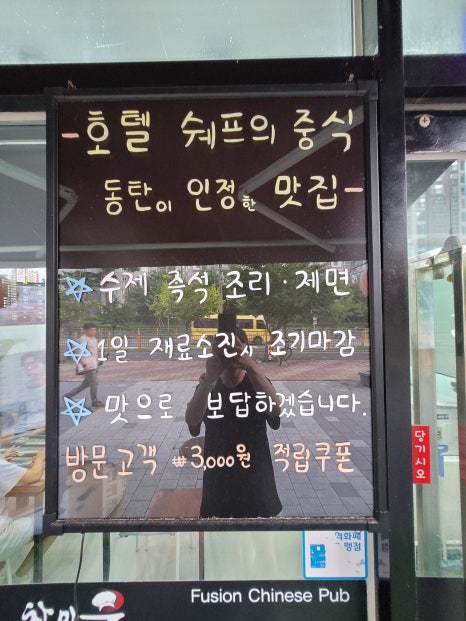 -호텔 쉐프의 중식
동탄이 인정한 맛집-
☆수제 즉석 조리·제면
☆1일 재료소진시 조기마감
☆맛으로 보답하겠습니다.
방문고객 ₩3,000원 적립쿠폰
당기시오
Fusion Chinese Pub